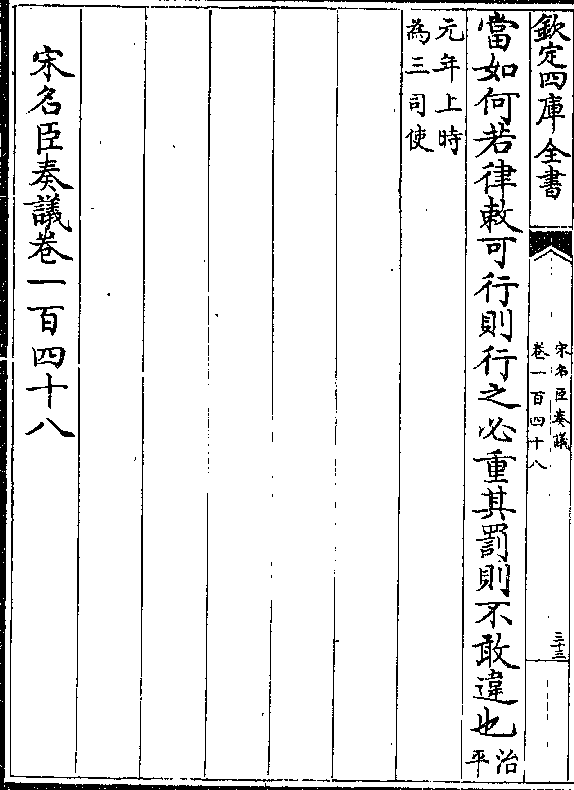 欽定四庫全書
宋名臣奏議
卷一百四十八
三十三
當如何若律敕可行則行之必重其罰則不敢違也治
平
元年上時
為三司使
宋名臣奏議卷一百四十八